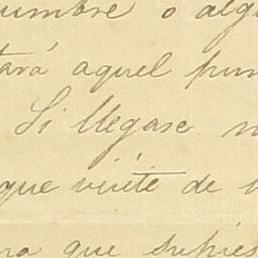 umbre o alg
tará aquel pun
Si llegase
que viute de
que supies